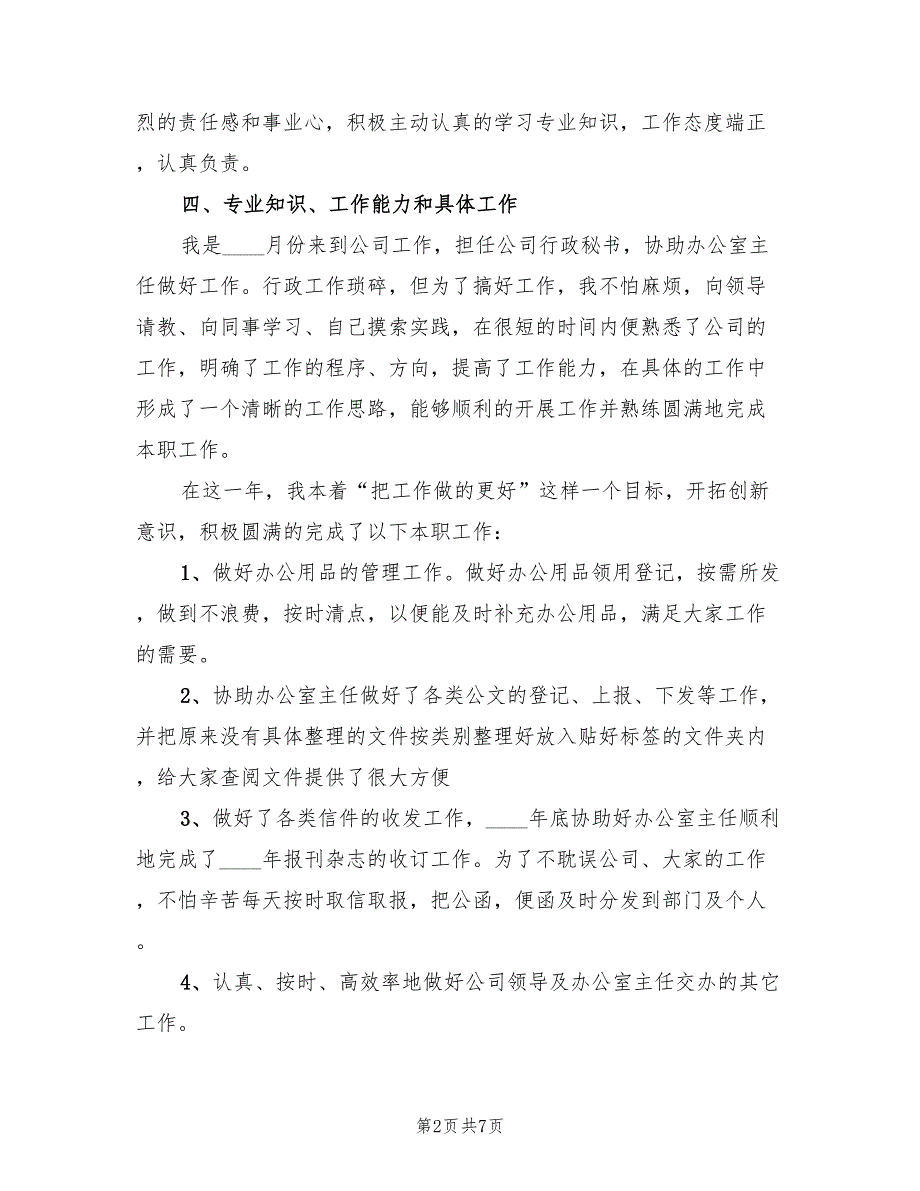 烈的责任感和事业心，积极主动认真的学习专业知识，工作态度端正
，认真负责。
四、专业知识、工作能力和具体工作
我是____月份来到公司工作，担任公司行政秘书，协助办公室主
任做好工作。行政工作琐碎，但为了搞好工作，我不怕麻烦，向领导
请教、向同事学习、自己摸索实践，在很短的时间内便熟悉了公司的
工作，明确了工作的程序、方向，提高了工作能力，在具体的工作中
形成了一个清晰的工作思路，能够顺利的开展工作并熟练圆满地完成
本职工作。
在这一年，我本着“把工作做的更好”这样一个目标，开拓创新
意识，积极圆满的完成了以下本职工作：
1、做好办公用品的管理工作。做好办公用品领用登记，按需所发
，做到不浪费，按时清点，以便能及时补充办公用品，满足大家工作
的需要。
2、协助办公室主任做好了各类公文的登记、上报、下发等工作，
并把原来没有具体整理的文件按类别整理好放入贴好标签的文件夹内
，给大家查阅文件提供了很大方便
3、做好了各类信件的收发工作，____年底协助好办公室主任顺利
地完成了____年报刊杂志的收订工作。为了不耽误公司、大家的工作
，不怕辛苦每天按时取信取报，把公函，便函及时分发到部门及个人
。
4、认真、按时、高效率地做好公司领导及办公室主任交办的其它
工作。
第2页共7页